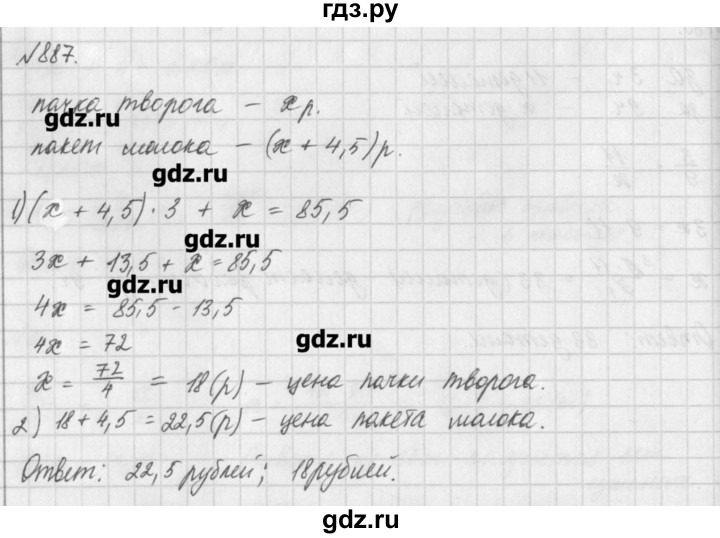 гдз.ру
№887.
пачка творога – x р.
gdz.ru
пакет молока – (x + 4,5) р.
gdz.ru
1) (x + 4,5) · 3 + x = 85,5
gdz.ru
3x + 13,5 + x = 85,5
gdz.ru
4x = 85,5 - 13,5
4x = 72
gdz.ru
x = 72/4 = 18 (р) – цена пачки творога.
2) 18 + 4,5 = 22,5 (р) – цена пакета молока.
gdz.ru
Ответ: 22,5 рублей; 18 рублей.
gdz.ru